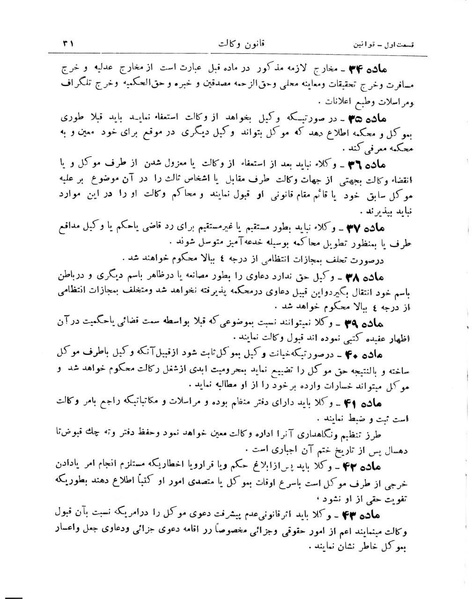 قسمت اول - قوانین
قانون وکالت
۳۱
ماده ۳۴ - مخارج لازمه مذکور در ماده قبل عبارت است از مخارج عدلیه و خرج
مسافرت و خرج تحقیقات و معاینه محلی و حق‌الزحمه مصدقین و خبره و حق‌الحکمیه و خرج تلگراف
و مراسلات و طبع اعلانات .
ماده ۳۵ - در صورتیکه وکیل بخواهد از وکالت استعفاء نمایـد باید قبلا طوری
بموکل و محکمه اطلاع دهد که موکل بتواند وکیل دیگری در موقع برای خود معین و به
محکمه معرفی کند .
ماده ۳۶ - وکلاء نباید بعد از استعفاء از وکالت یا معزول شدن از طرف موکل و یا
انقضاء وکالت بجهتی از جهات وکالت طرف مقابل یا اشخاص ثالث را در آن موضوع بر علیه
موکل سابق خود یا قائم مقام قانونی او قبول نمایند و محاکم وکالت او را در این موارد
نباید بپذیرند .
ماده ۳۷ - وکلاء نباید بطور مستقیم یا غیرمستقیم برای رد قاضی یا حکم یا وکیل مدافع
طرف یا بمنظور تطویل محاکمه بوسیله خدعه‌آمیز متوسل شوند .
درصورت تخلف بمجازات انتظامی از درجه ۴ ببالا محکوم خواهند شد .
ماده ۳۸ - وکیل حق ندارد دعاوی را بطور مصانعه یا درظاهر باسم دیگری و درباطن
باسم خود انتقال بگیرد و این قبیل دعاوی درمحکمه پذیرفته نخواهد شد و متخلف بمجازات انتظامی
از درجه ۴ ببالا محکوم خواهد شد .
ماده ۳۹ - وکلا نمیتوانند نسبت بموضوعی که قبلا بواسطه سمت قضائی یا حکمیت در آن
اظهار عقیده کتبی نموده اند قبول وکالت نمایند .
ماده ۴۰ - درصورتیکه خیانت وکیل بموکل ثابت شود از قبیل آنکه وکیل باطرف موکل
ساخته و بالنتیجه حق موکل را تضییع نماید بمحرومیت ابدی از شغل وکالت محکوم خواهد شد و
موکل میتواند خسارات وارده برخود را از او مطالبه نماید .
ماده ۴۱ - وکلا باید دارای دفتر منظم بوده و مراسلات و مکاتباتیکه راجع بامر وکالت
است ثبت و ضبط نمایند .
طرز تنظیم ونگاهداری آنرا اداره وکالت معین خواهد نمود وحفظ دفتر وته چك قبوض تا
ده سال پس از تاریخ ختم آن اجباری است .
ماده ۴۲ - وکلا باید پس از ابلاغ حکم و یا قرار و یا اخطاریکه مستلزم انجام امر یا دادن
خرجی از طرف موکل است باسرع اوقات بموکل یا متصدی امور او کتباً اطلاع دهند بطوریکه
تفویت حقی از او نشود .
ماده ۴۳ - وکلا باید اثر قانونی عدم پیشرفت دعوی موکل را در امریکه نسبت بآن قبول
وکالت مینمایند اعم از امور حقوقی وجزائی مخصوصاً در اقامه دعوی جزائی ودعاوی جعل واعسار
بموکل خاطر نشان نمایند .